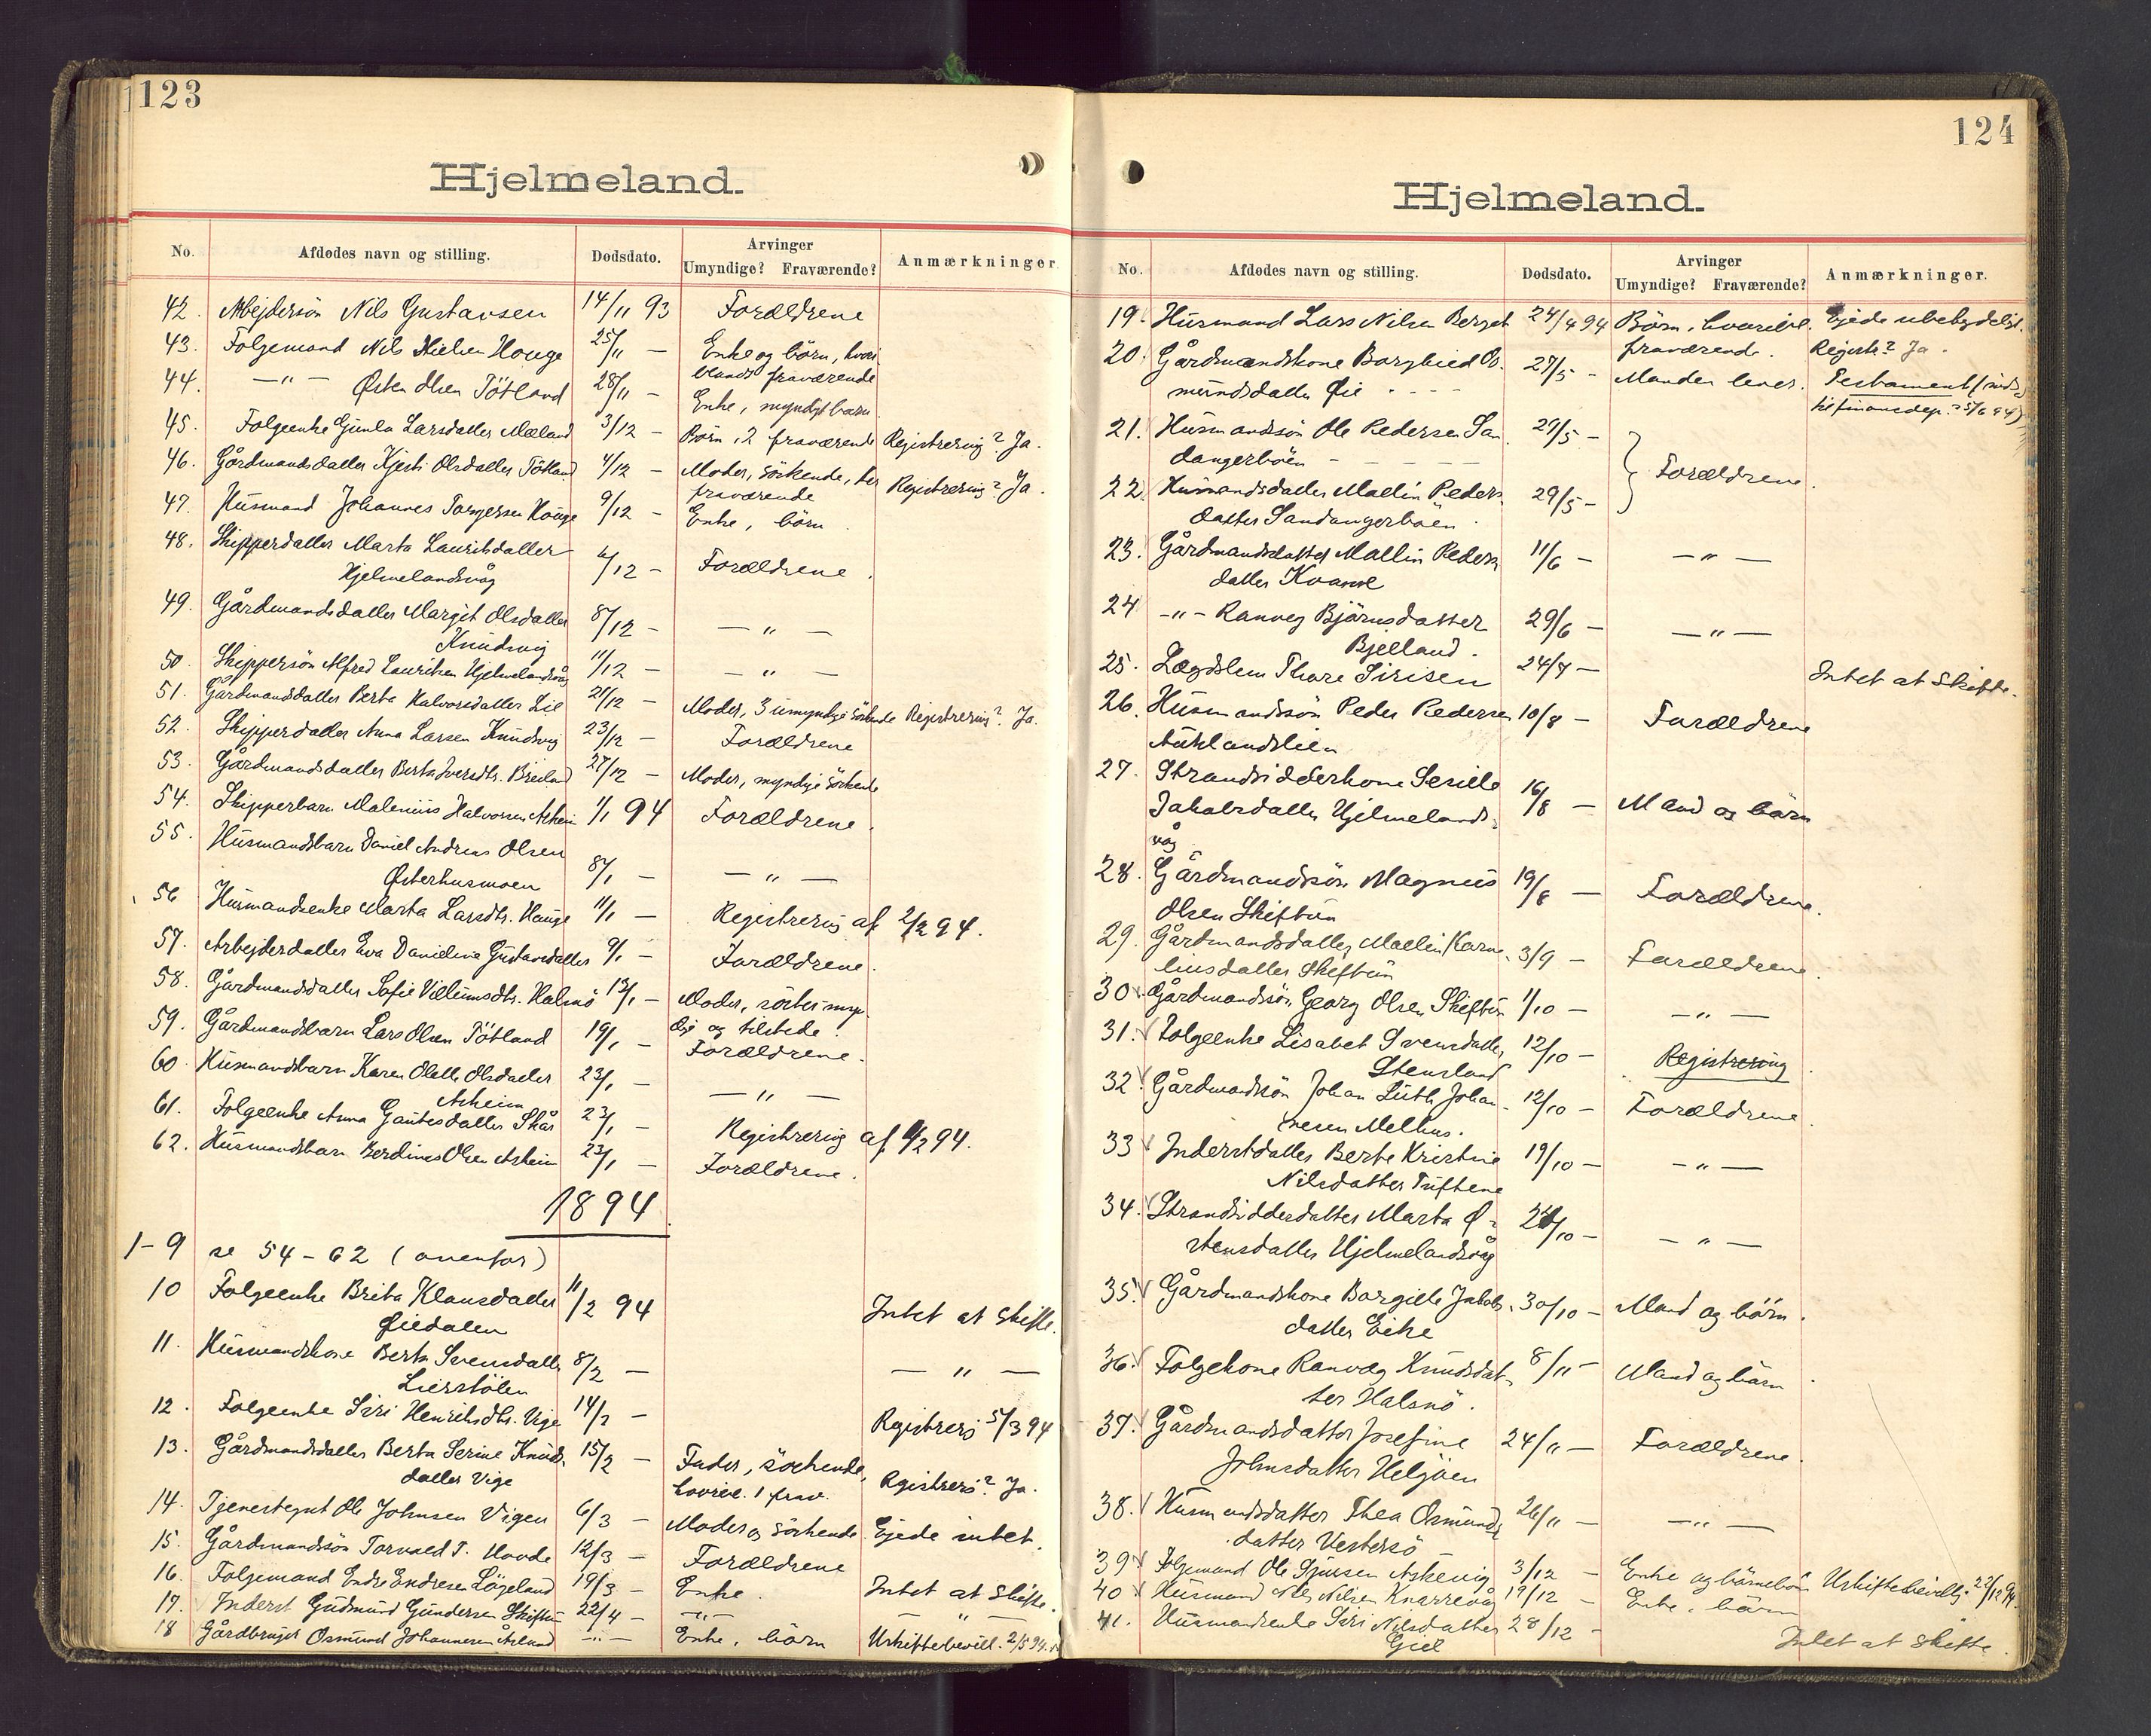 123
Hjelmeland.
No. Afdødes navn og stilling. Dødsdato. Arvinger Umyndige? Fraværende? Anmærkninger
42. Arbejdersön Nils Gustavsen 14/11 93 Forældrene
43. Folgemand Nils Nielsen Houge 25/11 — Enke og börn, hvori
blandt fraværende
44. —"— Østen Olsen Tötland 28/11 — Enke, myndigt barn
45. Folgeenke Gunla Larsdatter Mæland 3/12 — Börn, 2 fraværende Registrering? Ja.
46. Gårdmandsdatter Kjesti Olsdatter Tötland 4/12 — Moder, söskende, der Registrering? Ja.
fraværende
47. Husmand Johannes Torgersen Houge 9/12 — Enke, börn
48. Skipperdatter Marta Lauritsdatter
Hjelmelandsvåg 6/12 — Forældrene.
49. Gårdmandsdatter Margit Olsdatter 8/12 — — " —
Knudsvig
50. Skippersön Alfred Lauritsen Hjelmelandsvåg 11/12 — — " —
51. Gårdmandsdatter Berta Halvorsdatter Lie 21/12 — Moder, 3 umyndige söskende Registrering? Ja.
52. Skipperdatter Anna Larsen Knudsvig 23/12 — Forældrene
53. Gårdmandsdatter Berta Iversdtr. Breiland 27/12 — Moder, myndige söskende
54. Skipperbarn Malenius Halvorsen Askeim 1/1 94 Forældrene.
55. Husmandsbarn Daniel Andreas Olsen
Østerhusmoen 8/1 — — " —
56 Husmandsenke Marta Larsdtr. Hauge 11/1 — Registrering af 2/2 94.
57. Arbejderdatter Eva Danieline Gustavsdatter 9/1 — Forældrene.
58. Gårdmandsdatter Sofie Villumsdtr. Halsnö 13/1 — Moder, söster myn-
dig og tilstede.
59. Gårdmandsbarn Lars Olsen Tötland 19/1 — Forældrene.
60. Husmandsbarn Karen Olette Olsdatter 23/1 — — " —
Askeim
61. Folgeenke Anna Gautesdatter Skår 23/1 — Registrering af 4/2 94.
62. Husmandsbarn Berdines Olsen Askeim 23/1 — Forældrene.
1894.
1-9 se 54-62 (ovenfor)
10 Folgeenke Brita Klausdatter 11/2 94 Intet at skifte.
Øiedalen
11. Husmandskone Berta Svensdatter 8/2 — — " —
Lierstölen
12. Folgeenke Siri Henriksdtr. Vige 14/2 — Registrerg 5/3 94
13. Gårdmandsdatter Berta Serine Knuds- 15/2 — Fader, söskende, Registrerg? Ja.
datter Vige hvoribl. 1 frav.
14. Tjenestegut Ole Johnsen Vigen 6/3 — Moder og söskende Ejede intet.
15. Gårdmandsön Torvald T. Hovde 12/3 — Forældrene
16. Folgemand Endre Endresen Lögeland 19/3 — Enke. Intet at skifte.
17. Inderst Gudmund Gundersen Skiftun 22/4 — —"— — " —
18 Gårdbruger Osmund Johannesen Åsland —"— Enke, börn Uskiftebevill. 2/5 94.
124
Hjelmeland.
No. Afdødes navn og stilling. Dødsdato. Arvinger Umyndige? Fraværende? Anmærkninger.
19. Husmand Lars Nilsen Berget 24/4 94 Börn, hvoribl. Ejede ubetydeligt.
fraværende. Registr? Ja.
20. Gårdmandskone Borghild Os- 27/5 — Manden lever. Testament (inds.
mundsdatter Øie til finansdep. 25/6 94)
21. Husmandssön Ole Pedersen San- 29/5 —
dangerböen — Forældrene.
22. Husmandsdatter Mallin Peders- 29/5 —
datter Sandangerböen.
23. Gårdmandsdatter Mallin Peders- 11/6 — — " —
datter Kvame
24 —"— Ranveg Bjärnsdatter 29/6 — — " —
Bjelland.
25. Lægdslem Thore Sirisen 24/7 — Intet at skifte.
26. Husmandssön Peder Pedersen 10/8 — Forældrene
Auklandslien
27. Strandsidderkone Serille
Jakobsdatter Hjelmelands- 16/8 — Mand og börn
våg
28. Gårdmandsön Magnus 19/8 — Forældrene.
Olsen Skiftun
29. Gårdmandsdatter Mallin Karne- 3/9 — Forældrene.
liusdatter Skiftun
30. Gårdmandssön Georg Olsen Skiftun 1/10 — — " —
31. Folgeenke Lisabet Svensdatter 12/10 — Registrering
Stensland
32. Gårdmandsön Johan Luth Johan- 12/10 — Forældrene.
nesen Melhus.
33 Inderstdatter Berte Kristine 19/10 — — " —
Nilsdatter Tuftene
34. Strandsidderdatter Marta Ø- 24/10 — — " —
stensdatter Hjelmelandsvåg
35. Gårdmandskone Borgille Jakobs- 30/10 — Mand og börn.
datter Eike
36. Folgekone Ranvæg Knudsdat- 8/11 — Mand og börn
ter Halsnö.
37. Gårdmandsdatter Josefine 24/11 — Forældrene.
Johnsdatter Helgöen
38. Husmandsdatter Thea Osmunds- 26/11 — — " —
datter Vestersö
39. Folgemand Ole Sjursen Askevig 3/12 — Enke og börnebörn Uskiftebevillg. 22/12 94.
40 Husmand Nils Nilsen Knarrevåg 19/12 — Enke, börn
41. Husmandsenke Siri Nilsdatter 28/12 — Intet at skifte.
Giel